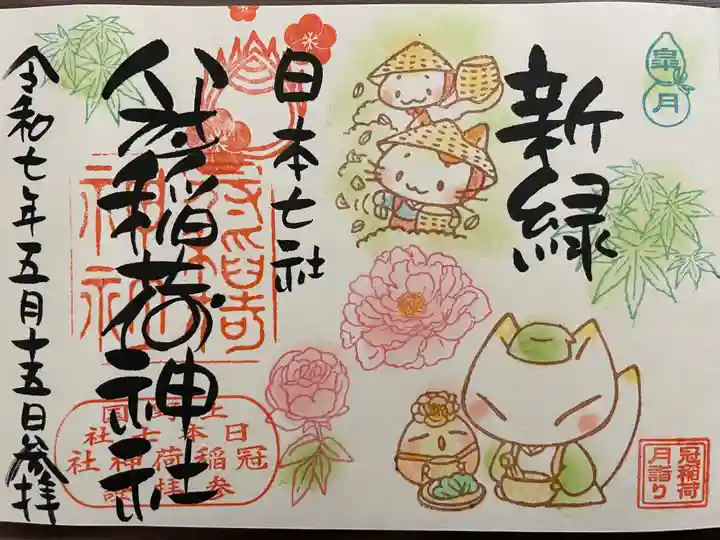 皐月
新緑
日本七社
冠稲荷神社
令和七年五月十五日参拝
上野国
日本七社
冠稲荷神社
参拝
冠稲荷
月詣り